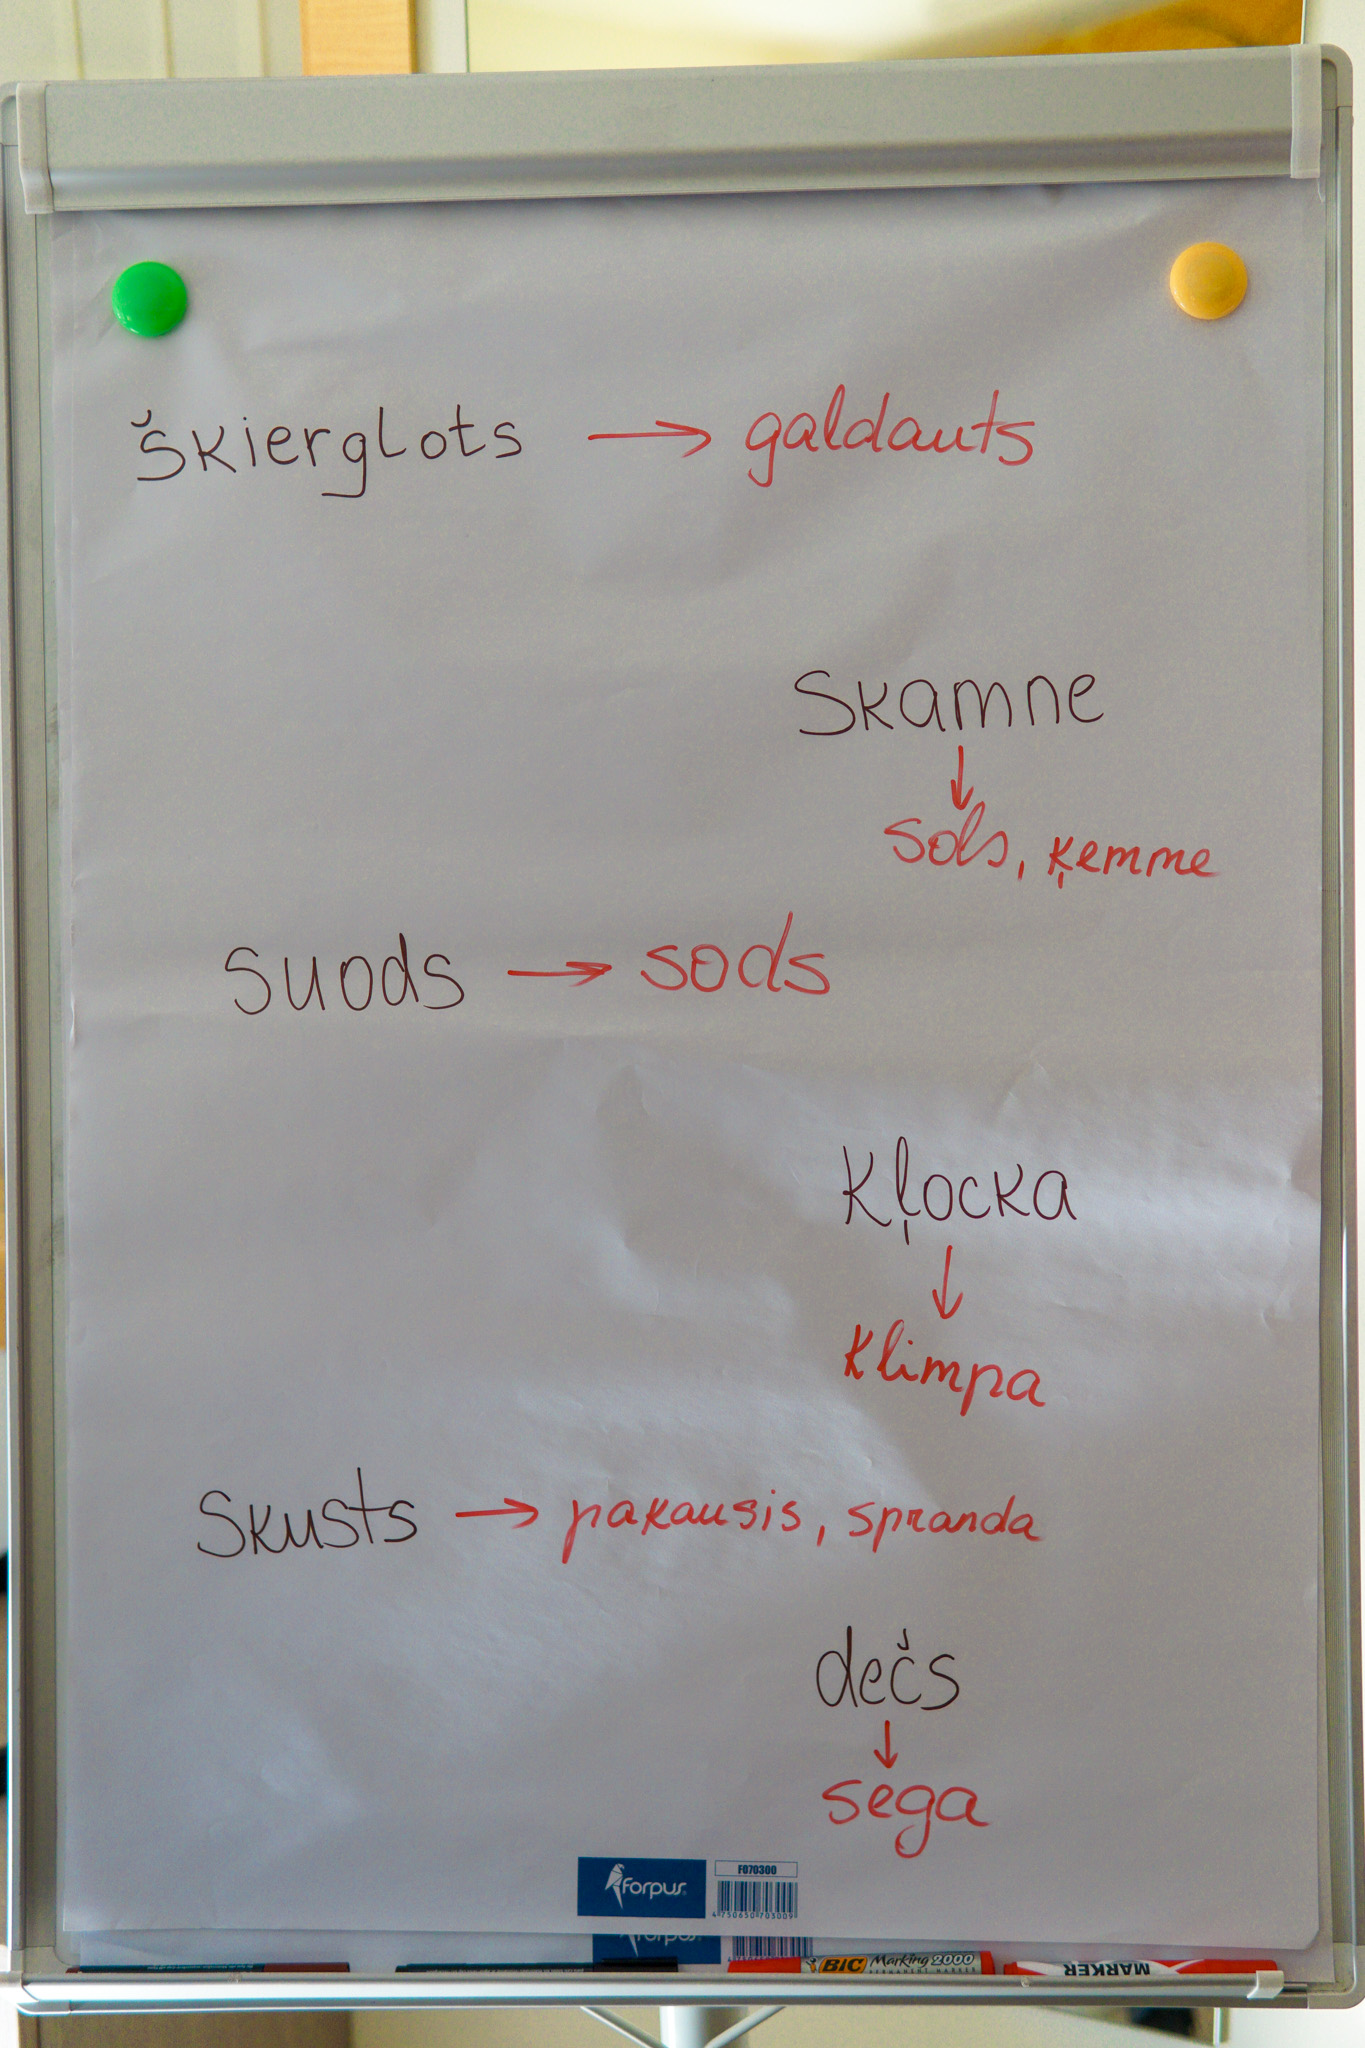 škierglots → galdauts
skamne
↓
sols, ķemme
suods → sods
kļocka
↓
klimpa
skusts → pakausis, spranda
dečs
↓
sega
forpus
F070300
4 750650 703009
forpus
BIC Marking 2000
PERMANENT MARKER
MARKER